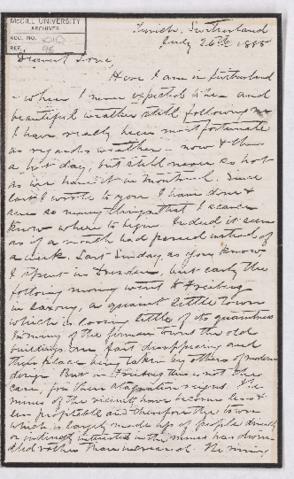 McGILL UNIVERSITY
ARCHIVES
ACC. NO.
REF.
Zurich, Switzerland
July 26th 1885
Dearest Love,
Here I am in Switzerland
- where I never expected to be - and
beautiful weather still following me
I have really been most fortunate
as regards weather - now & then
a hot day, but still never so hot
as we have it in Montreal. Since
last I wrote to you I have done &
seen so many things that I scarce
know where to begin. Indeed it seems
as if a month had passed instead of
a week. Last Sunday, as you know
I spent in Dresden, but early the
following morning went to Freiberg
in Saxony, a quaint little town
which is loosing little of its quaintness
In many of the German towns the old
buildings are fast disappearing and
their place being taken by others of modern
design. But in Freiberg this is not the
case, for there stagnation reigns. The
mines of the vicinity have become less &
less profitable and therefore the town
which is largely made up of people directly
or indirectly interested in the mines has dwin-
dled rather than increased. The mining